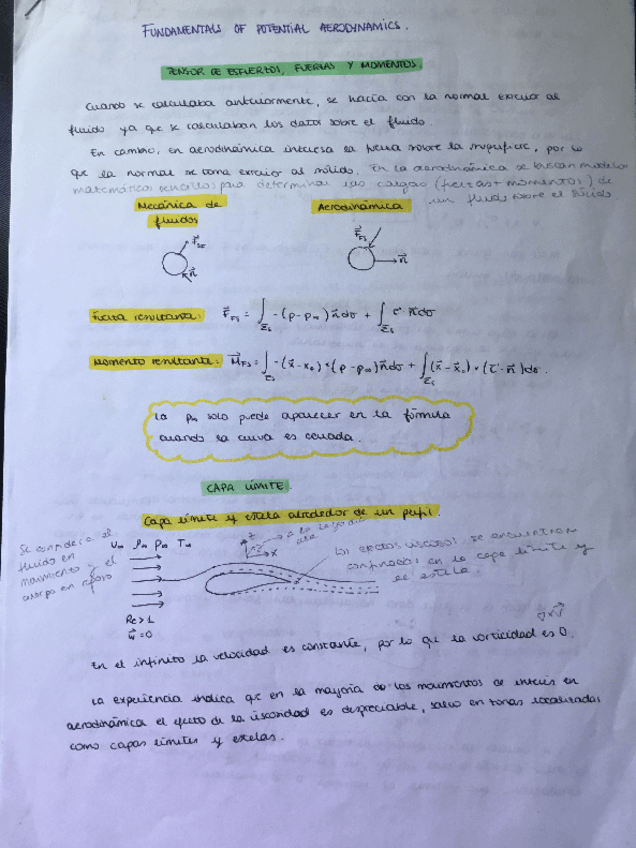 FUNDAMENTALS OF POTENTIAL AERODYNAMICS.
TENSOR DE ESFUERZOS, FUERZAS Y MOMENTOS
Cuando se calculaba anteriormente, se hacía con la normal exterior al
fluido ya que se calculaban los datos sobre el fluido.
En cambio, en aerodinámica interesa la fuerza sobre la superficie, por lo
que la normal se toma exterior al sólido. En la aerodinámica se buscan modelos
matemáticos sencillos para determinar las cargas (fuerzas + momentos) de
un fluido sobre el sólido.
Mecánica de fluidos
Aerodinámica
F⃗SF
n⃗
F⃗FS
n⃗
Fuerza resultante: F⃗FS = ∫Σs -(p-p∞) n⃗ dσ + ∫Σs τ'·n⃗ dσ
Momento resultante: M⃗FS = ∫Σs -(x⃗-x₀)×(p-p∞) n⃗ dσ + ∫Σs (x⃗-x⃗₀)×(τ'·n⃗) dσ.
La p∞ solo puede aparecer en la fórmula
cuando la curva es cerrada.
CAPA LÍMITE.
Capa límite y estela alrededor de un perfil.
Se considera el
fluido en
movimiento y el
cuerpo en reposo
U∞ ρ∞ p∞ T∞
z
x
Los efectos viscosos se encuentran
confinados en la capa límite y
la estela.
Re>1
ω⃗=0
∇×V⃗
En el infinito la velocidad es constante, por lo que la vorticidad es 0.
La experiencia indica que en la mayoría de los movimientos de interés en
aerodinámica el efecto de la viscosidad es despreciable, salvo en zonas localizadas
como capas límites y estelas.